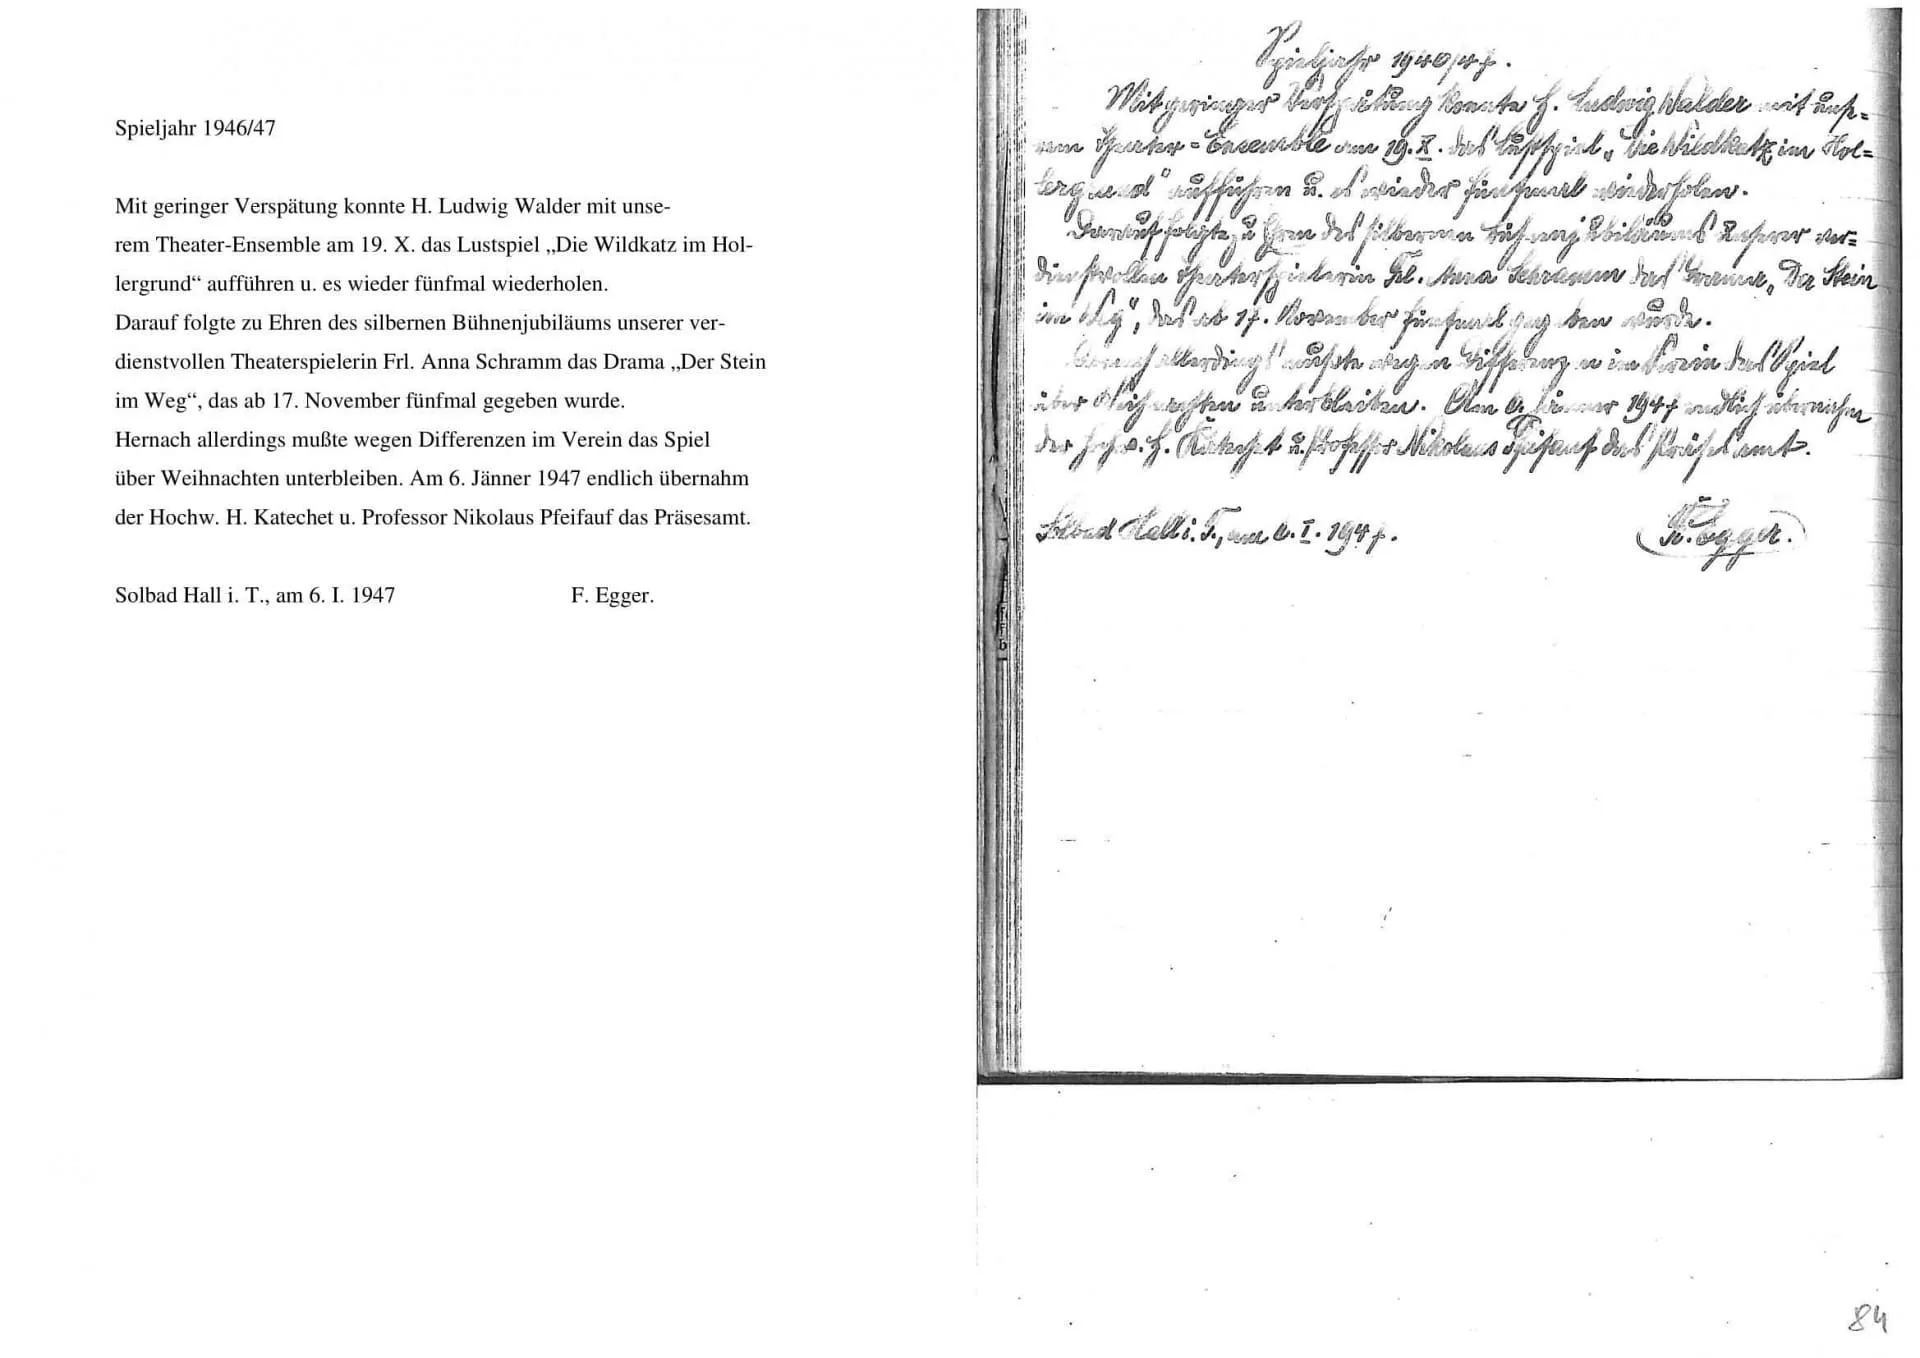 Spieljahr 1946/47
Mit geringer Verspätung konnte H. Ludwig Walder mit unse-
rem Theater-Ensemble am 19. X. das Lustspiel „Die Wildkatz im Hol-
lergrund“ aufführen u. es wieder fünfmal wiederholen.
Darauf folgte zu Ehren des silbernen Bühnenjubiläums unserer ver-
dienstvollen Theaterspielerin Frl. Anna Schramm das Drama „Der Stein
im Weg“, das ab 17. November fünfmal gegeben wurde.
Hernach allerdings mußte wegen Differenzen im Verein das Spiel
über Weihnachten unterbleiben. Am 6. Jänner 1947 endlich übernahm
der Hochw. H. Katechet u. Professor Nikolaus Pfeifauf das Präsesamt.
Solbad Hall i. T., am 6. I. 1947 F. Egger.
Spieljahr 1946/47.
Mit geringer Verspätung konnte H. Ludwig Walder mit unse-
rem Theater-Ensemble am 19. X. das Lustspiel „Die Wildkatz im Hol-
lergrund“ aufführen u. es wieder fünfmal wiederholen.
Darauf folgte zu Ehren des silbernen Bühnenjubiläums unserer ver-
dienstvollen Theaterspielerin Frl. Anna Schramm das Drama „Der Stein
im Weg“, das ab 17. November fünfmal gegeben wurde.
Hernach allerdings mußte wegen Differenzen im Verein das Spiel
über Weihnachten unterbleiben. Am 6. Jänner 1947 endlich übernahm
der Hochw. H. Katechet u. Professor Nikolaus Pfeifauf das Präsesamt.
Solbad Hall i. T., am 6. I. 1947. F. Egger.
84